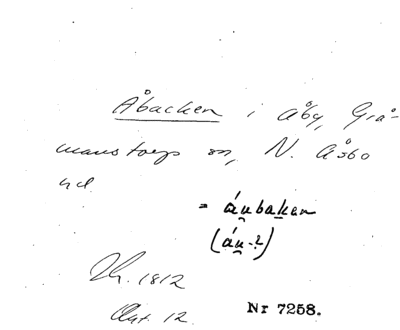 Åbacken i Åby, Grå-
manstorps sn, N. Åsbo
hd.
= áu̯baken
(áu̯-?)
1812
Akt. 12.
Nr 7258.